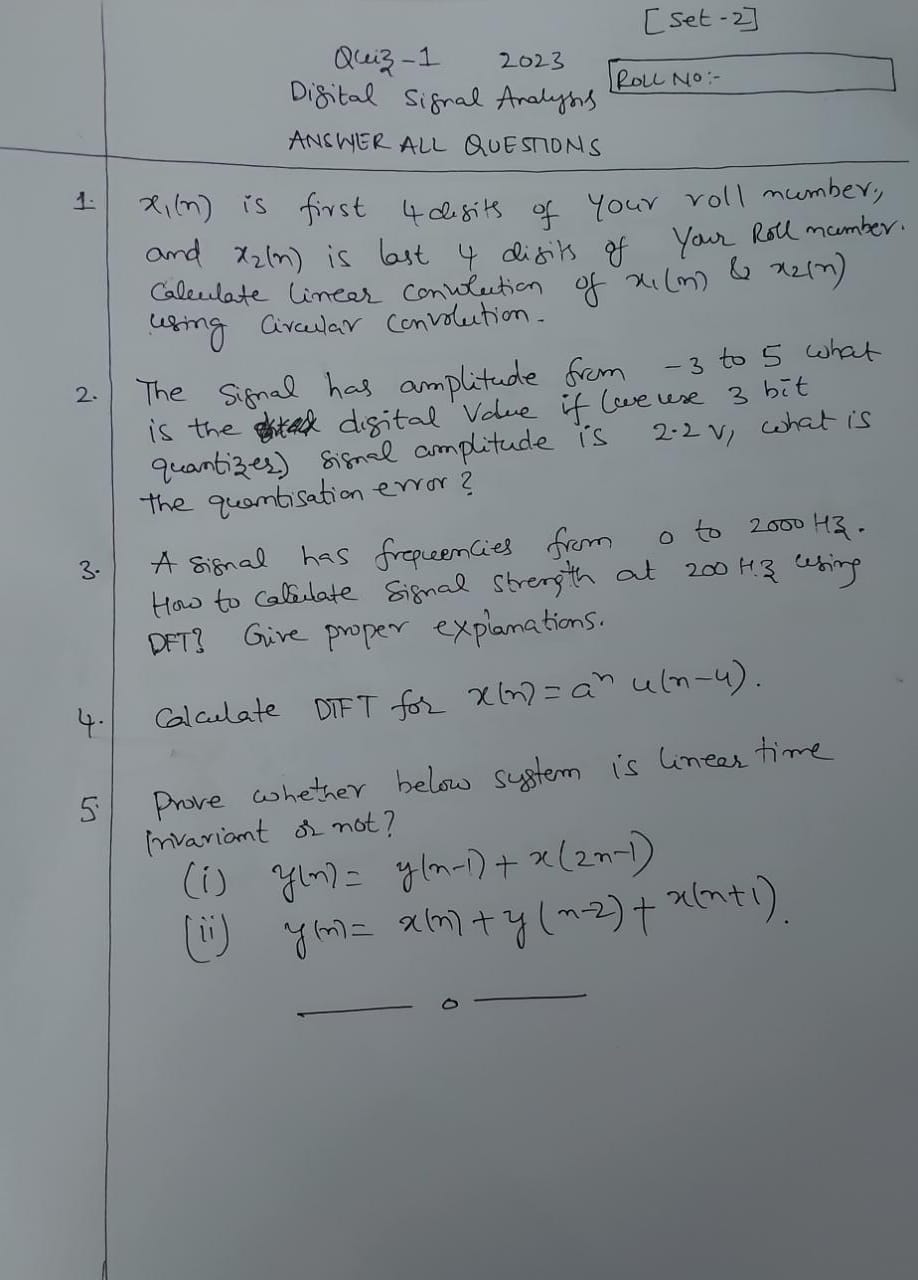 [Set-2]
Quiz-1 2023
Digital Signal Analysis
ROLL NO:-
ANSWER ALL QUESTIONS
1. x₁(n) is first 4 digits of Your roll number,
and x₂(n) is last 4 digits of Your Roll number.
Calculate linear convolution of x₁(n) & x₂(n)
using Circular Convolution.
2. The Signal has amplitude from -3 to 5 what
is the digital Value if (we use 3 bit
quantizer) signal amplitude is 2.2 V, what is
the quantisation error?
3. A signal has frequencies from 0 to 2000 Hz.
How to calculate Signal strength at 200 Hz using
DFT? Give proper explanations.
4. Calculate DTFT for x(n) = aⁿ u(n-4).
5. Prove whether below system is linear time
Invariant or not?
(i) y(n) = y(n-1) + x(2n-1)
(ii) y(n) = x(n) + y(n-2) + x(n+1).